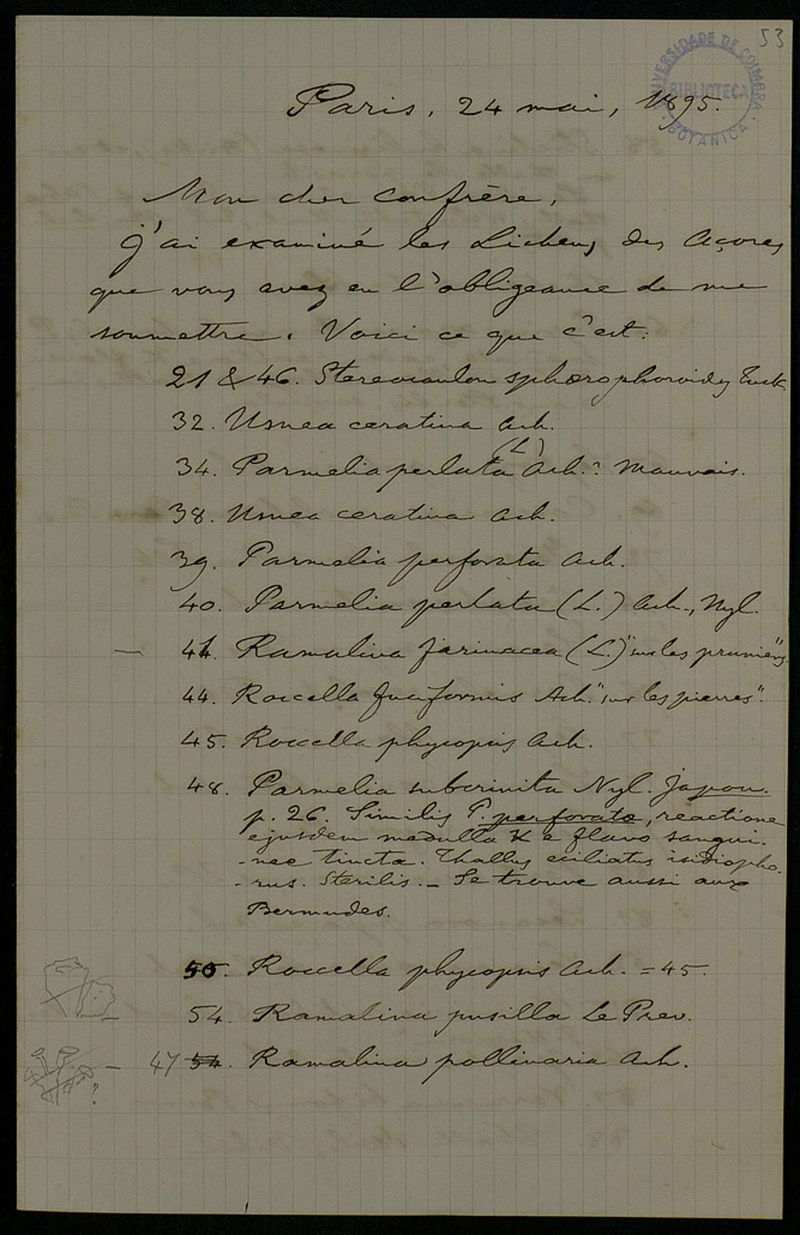 53
UNIVERSIDADE DE COIMBRA
BIBLIOTECA
BOTANICA
Paris, 24 mai, 1895.
Mon cher confrère,
J'ai examiné les Lichens des Açores
que vous avez eu l'obligeance de me
soumettre. Voici ce que c'est:
21 & 46. Stereocaulon sphærophoroides Tuck.
32. Usnea ceratina Ach.
34. Parmelia perlata (L.) Ach.? Mauvais.
38. Usnea ceratina Ach.
39. Parmelia perforata Ach.
40. Parmelia perlata (L.) Ach., Nyl.
— 41. Ramalina farinacea (L.) "sur les pruniers"
44. Roccella fuciformis Ach. "sur les pierres".
45. Roccella phycopsis Ach.
48. Parmelia subcrinita Nyl. Japon.
p. 26. Similis P. perforatæ, reactione
ejusdem medulla K e flavo sangui-
-nee tincta. Thallus eciliatus isidiopho-
-rus. Sterilis. — Se trouve aussi aux
Bermudes.
50. Roccella phycopsis Ach. = 45.
— 54. Ramalina pusilla Le Prev.
? — 47 54. Ramalina pollinaria Ach.